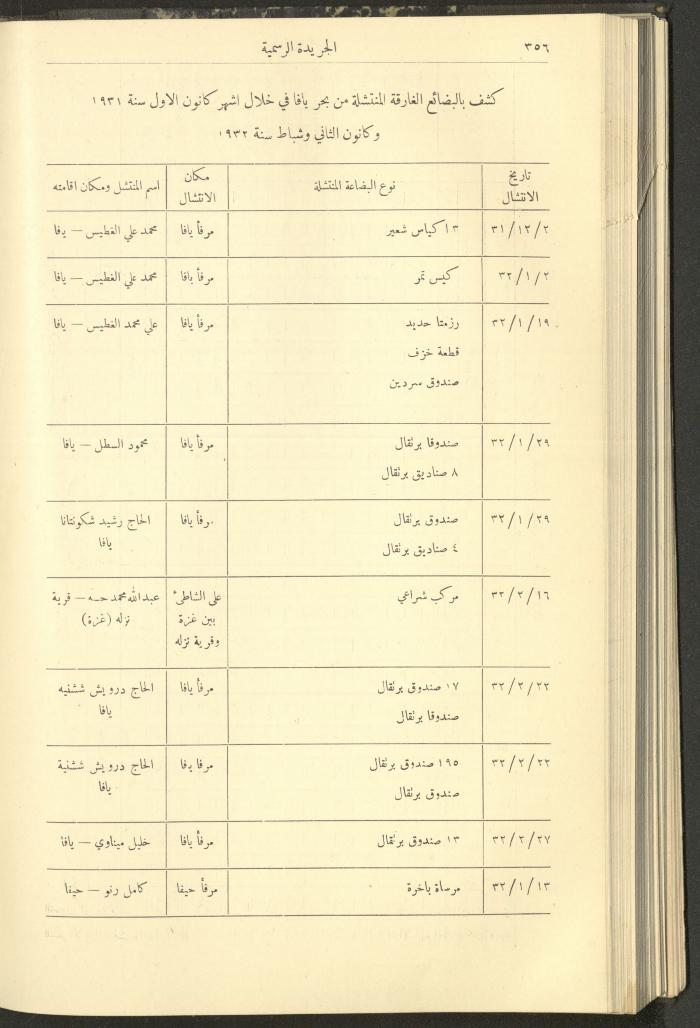 ٣٥٦
الجريدة الرسمية
كشف بالبضائع الغارقة المنتشلة من بحر يافا في خلال اشهر كانون الاول سنة ١٩٣١
وكانون الثاني وشباط سنة ١٩٣٢
تاريخ الانتشال | نوع البضاعة المنتشلة | مكان الانتشال | اسم المنتشل ومكان اقامته
٣١/١٢/٢ | ٣ اكياس شعير | مرفأ يافا | محمد علي الغطيس — يافا
٣٢/١/٢ | كيس تمر | مرفأ يافا | محمد علي الغطيس — يافا
٣٢/١/١٩ | رزمتا حديد | مرفأ يافا | علي محمد الغطيس — يافا
قطعة خزف
صندوق سردين
٣٢/١/٢٩ | صندوقا برتقال | مرفأ يافا | محمود السطل — يافا
٨ صناديق برتقال
٣٢/١/٢٩ | صندوق برتقال | مرفأ يافا | الحاج رشيد شكونتانا
٤ صناديق برتقال | يافا
٣٢/٢/١٦ | مركب شراعي | على الشاطئ | عبدالله محمد حسنه — قرية
بين غزة | نزله (غزة)
وقرية نزله
٣٢/٢/٢٢ | ١٧ صندوق برتقال | مرفأ يافا | الحاج درويش ششنيه
صندوقا برتقال | يافا
٣٢/٢/٢٢ | ١٩٥ صندوق برتقال | مرفا يافا | الحاج درويش ششنية
صندوق برتقال | يافا
٣٢/٢/٢٧ | ١٣ صندوق برتقال | مرفأ يافا | خليل ميناوي — يافا
٣٢/١/١٣ | مرساة باخرة | مرفأ حيفا | كامل رنو — حيفا